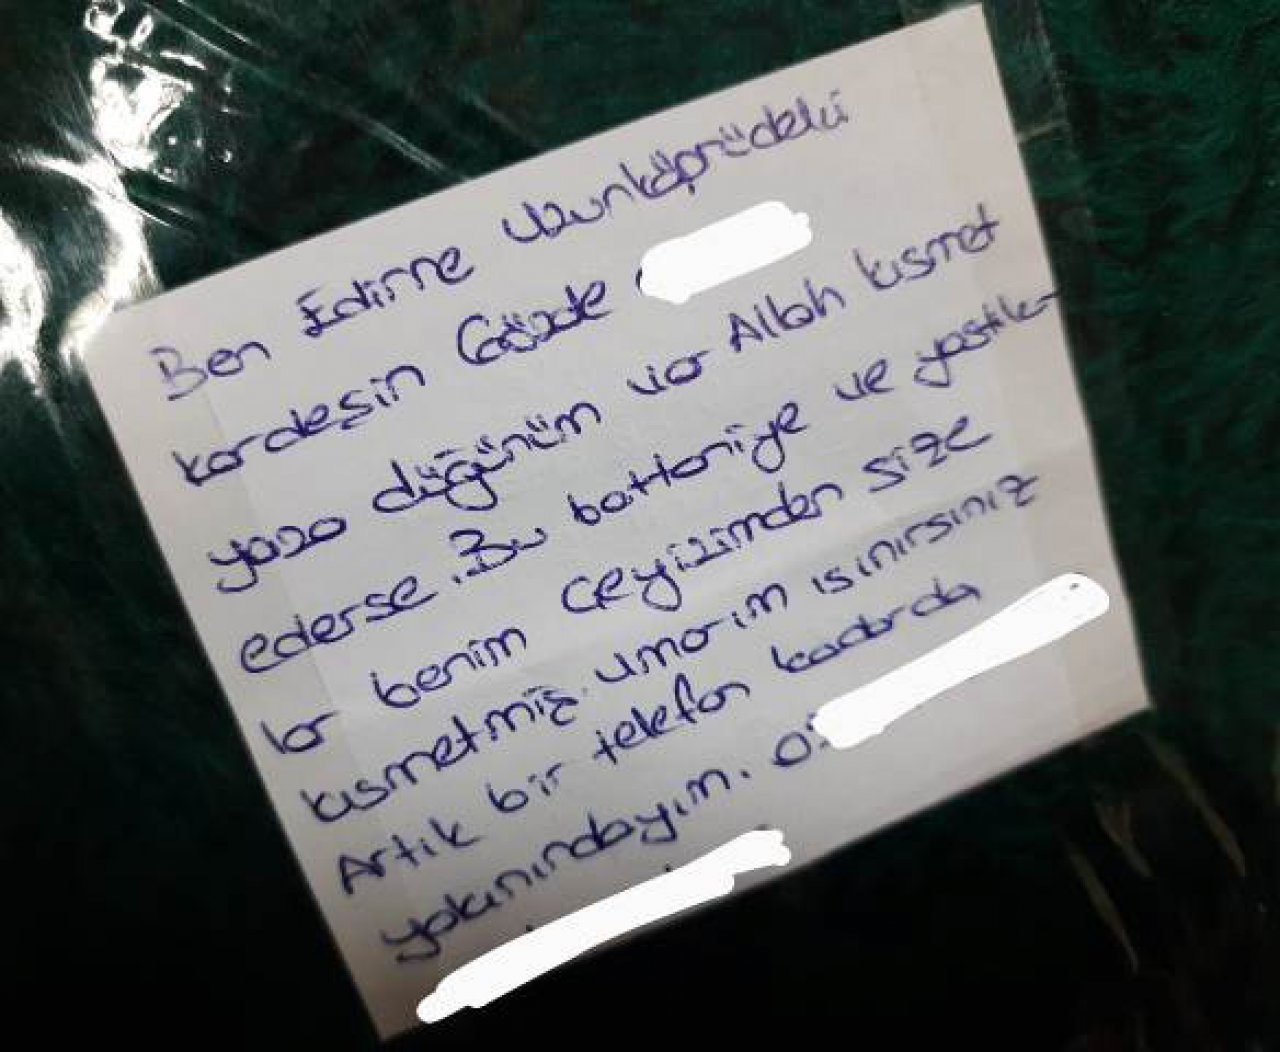 Ben Edirne Uzunköprüdeki
kardeşin Gözde
yaza düğünüm var Allah kısmet
ederse. Bu battaniye ve yastık
lar benim çeyizimden size
kısmetmiş. umarım ısınırsınız
Artık bir telefon kadarda
yakınındayım. 05